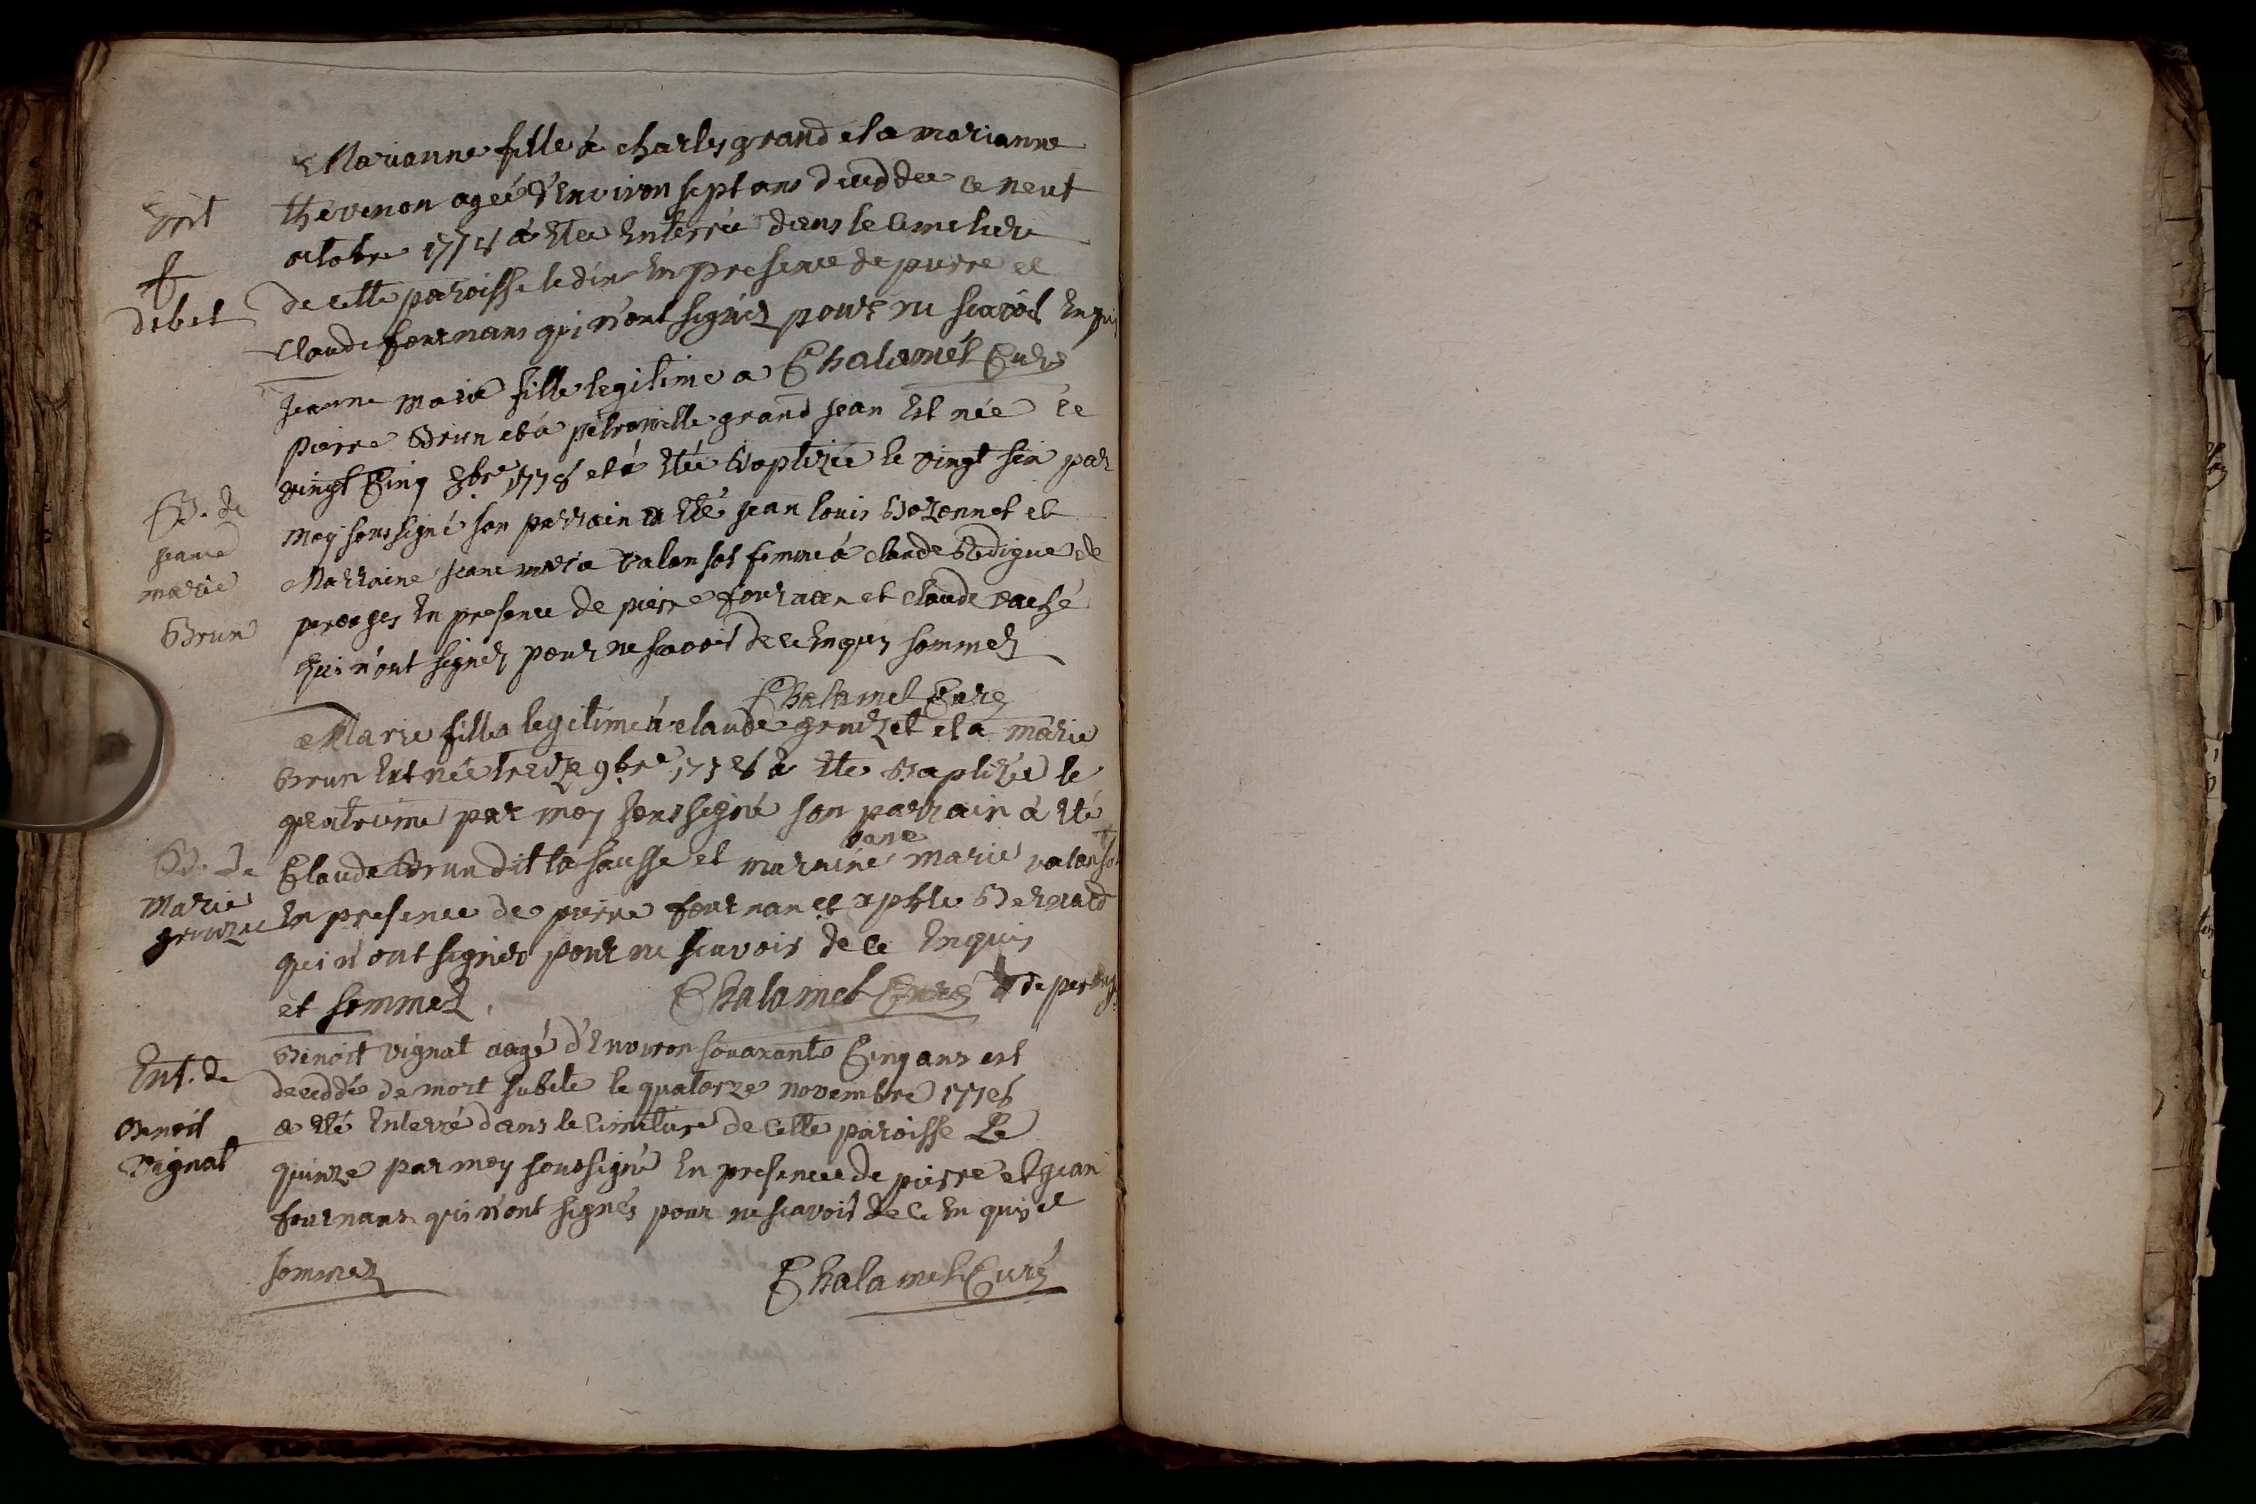 Marianne fille à charles grand et a marianne
thévenon agée d'Environ sept ans deceddée le neuf
octobre 177 a Ete Enterrée dans le Cimetiere
debet
de cette paroisse le dix En presence de pierre et
Claude fournans qui n'ont signéz pour ne scavoir Enquis
Chalamet Curé
Jeanne Marie fille legitime a
pierre Brun et a petronille grand jean Est née le
vingt Cinq 8bre 1776 et a Etée Baptizée le vingt six par
B. de
jeane
marie
Brun
Moy soussigné son parrain a Eté jean louis Bozonnet et
Marraine jeane marie valansot femme à claude Bedigue de
perouges En presence de pierre fournan et Claude vaché
qui n'ont signéz pour ne scavoir de ce Enquis sommez
Chalamet Curé
Marie fille legitime à claude grouzet et a marie
Brun Est née treize 9bre 1776 a Ete Baptizée le
quatrieme par moy soussigné son parrain à Eté
B. de
Marie
Claude Brun dit la sausse et marraine jane marie valanso
En presence de pierre fournan et Bernard
qui n'ont signés pour ne scavoir de ce Enquis
et sommez Chalamet Curé de perouge
Ent. de
Benoit
Vignat
Benoit vignat aagé d'Environ souaxante Cinq ans est
deceddé de mort subite le quatorze novembre 1776
a Eté Enterré dans le Cimetiere de Cette paroisse Le
quinze par moy soussigné En presence de pierre et jean
fournans qui n'ont signés pour ne scavoir de Ce En quis et
sommez Chalamet Curé